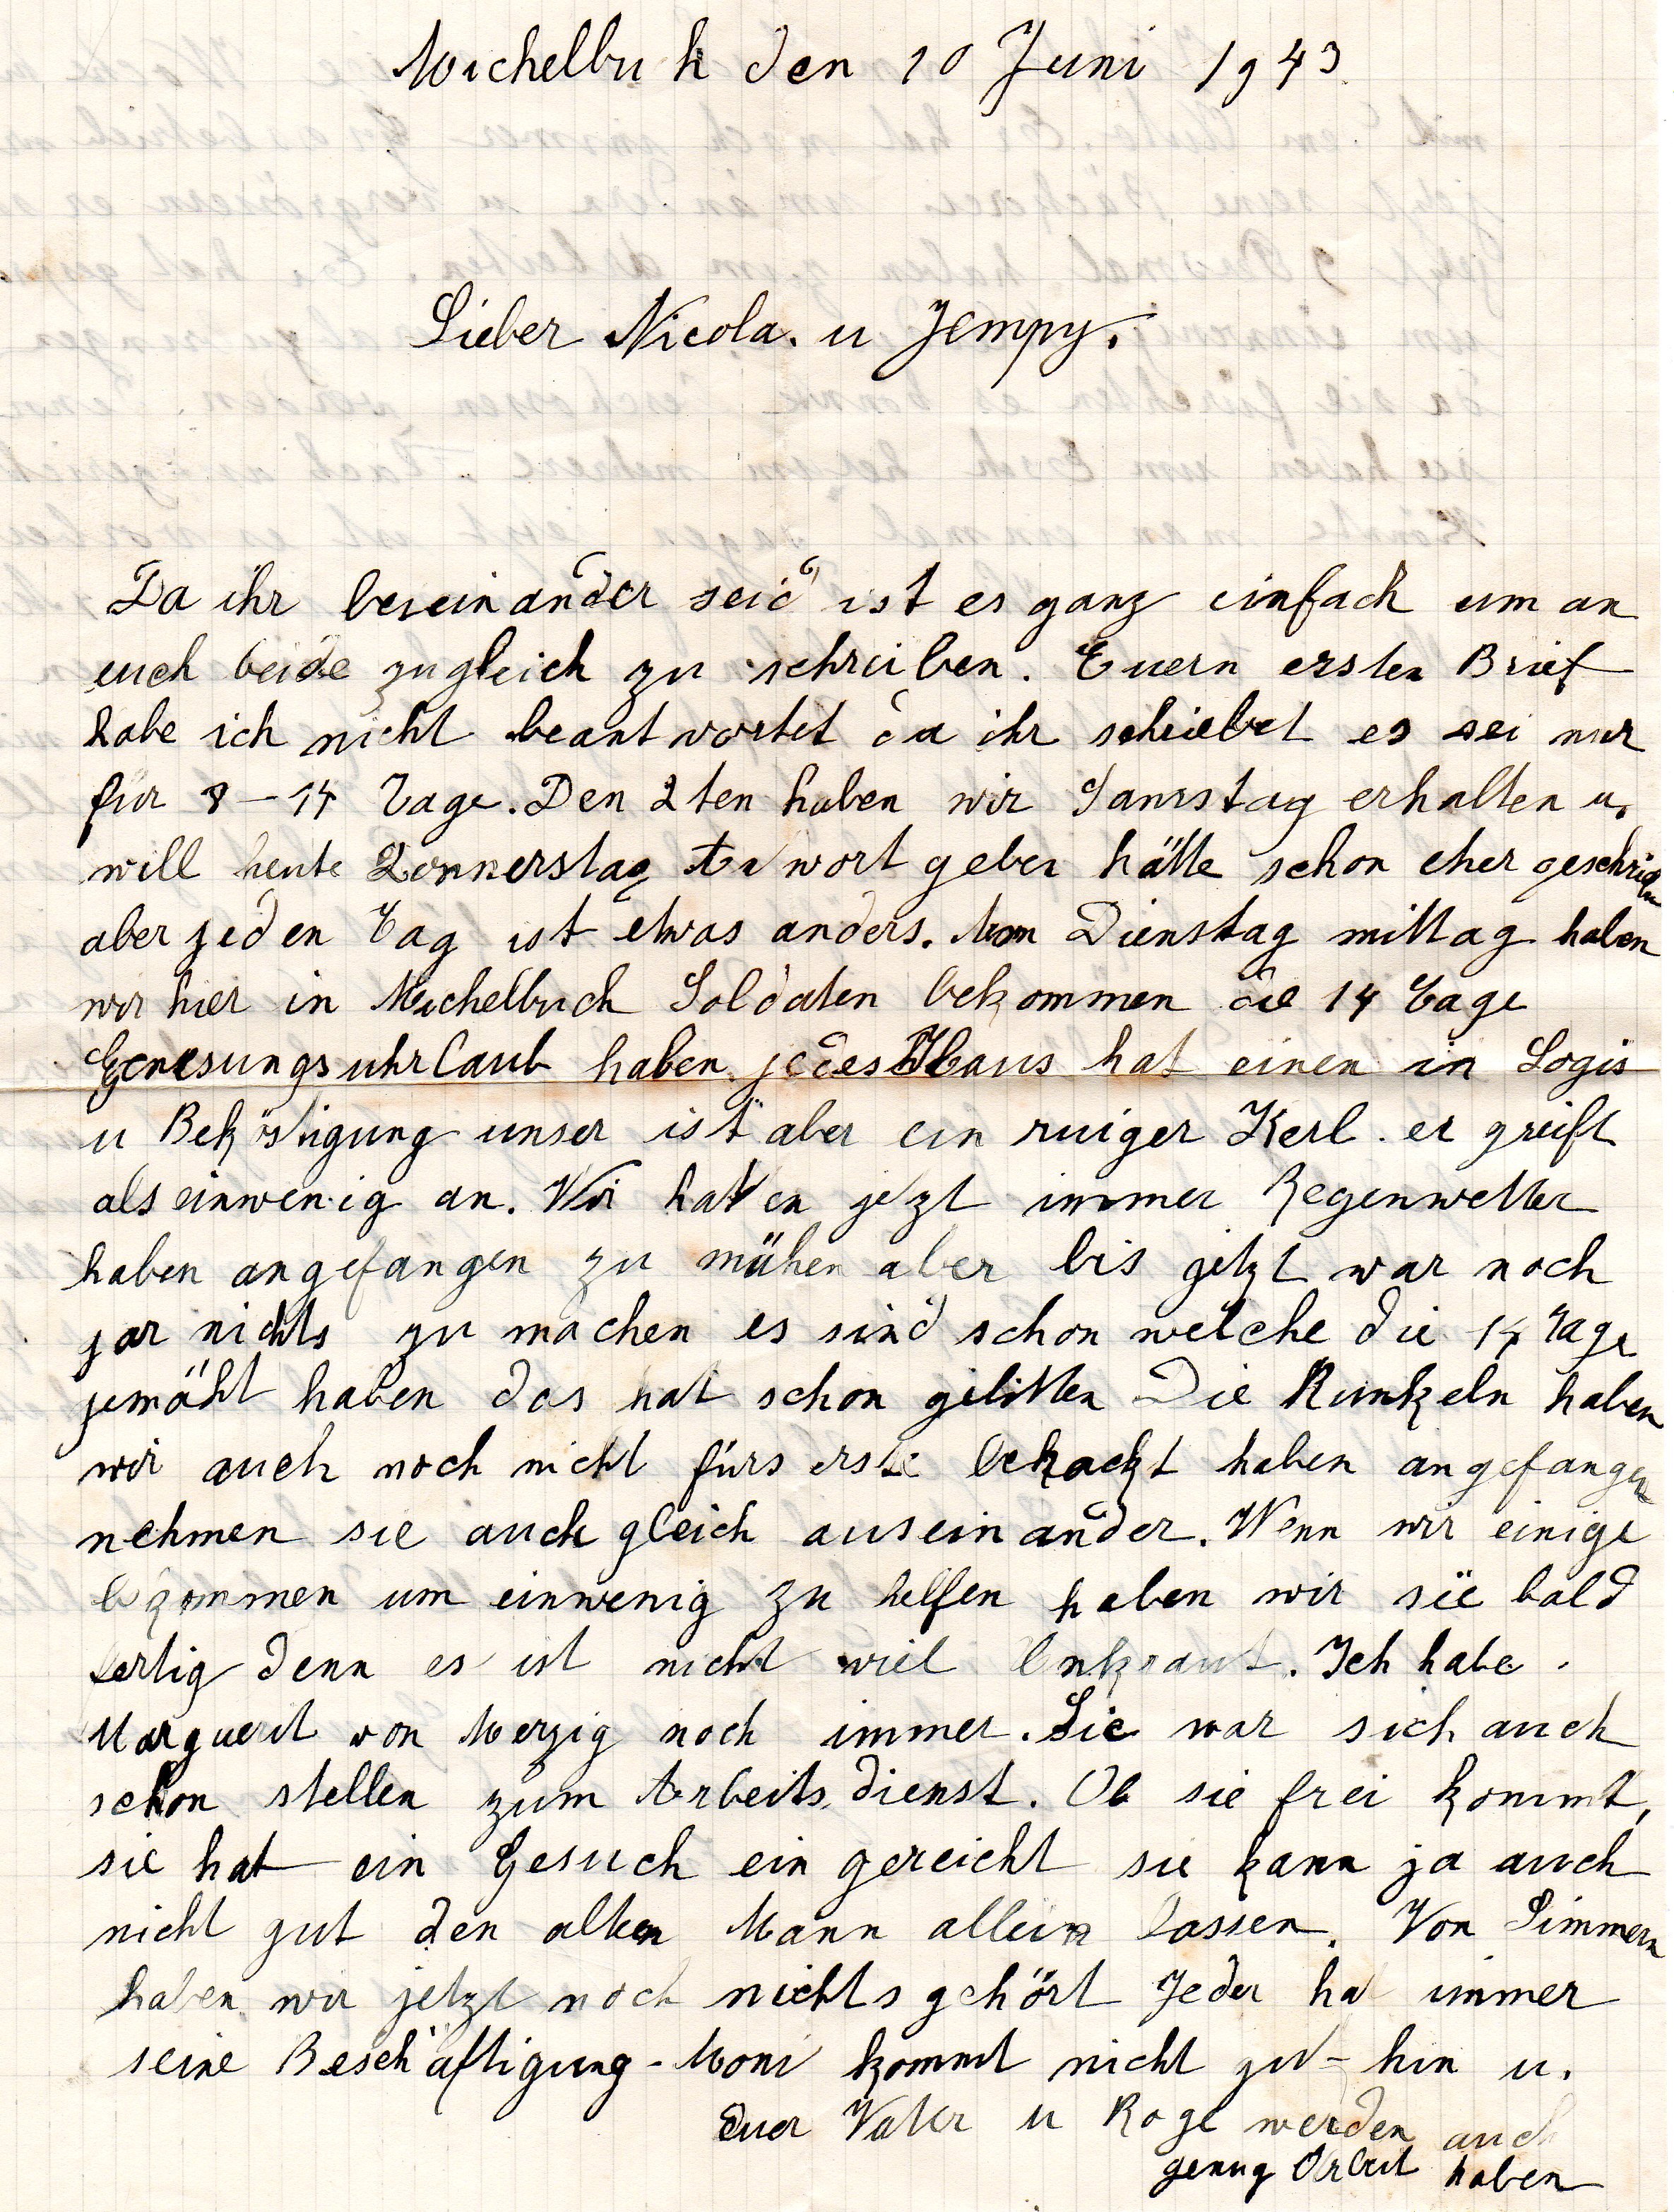 Michelbuch den 10 Juni 1943
Lieber Nicola. u Jempy.
Da ihr beieinander seid ist es ganz einfach um an
euch beide zugleich zu schreiben. Euern ersten Brief
habe ich nicht beantwortet da ihr schriebet es sei nur
für 8-14 Tage. Den 2ten haben wir Samstag erhalten u.
will heute Donnerstag Antwort geben hätte schon eher geschrieben
aber jeden Tag ist etwas anders. Dienstag mittag haben
wir hier in Michelbuch Soldaten bekommen die 14 Tage
Genesungsuhrlaub haben jedes Haus hat einen in Logis
u Beköstigung unser ist aber ein ruiger Kerl. er greift
als einwenig an. Wir haben jetzt immer Regenwetter
haben angefangen zu mühen aber bis jetzt war noch
jar nichts zu machen es sind schon welche die 14 Tage
jemäht haben das hat schon gelitten Die Runkeln haben
wir auch noch nicht fürs erste behackt haben angefangen
nehmen sie auch gleich auseinander. Wenn wir einige
bekommen um einwenig zu helfen haben wir sie bald
fertig denn es ist nicht viel Unkraut. Ich habe
Marguerit von Merzig noch immer. Sie war sich auch
schon stellen zum Arbeitsdienst. Ob sie frei kommt,
sie hat ein Gesuch ein gereicht sie kann ja auch
nicht gut den alten Mann allein lassen. Von Simmern
haben wir jetzt noch nichts gehört Jeder hat immer
seine Beschäftigung - Moni kommt nicht zu - hin u.
Euer Vater u Roge werden auch
genug Arbeit haben